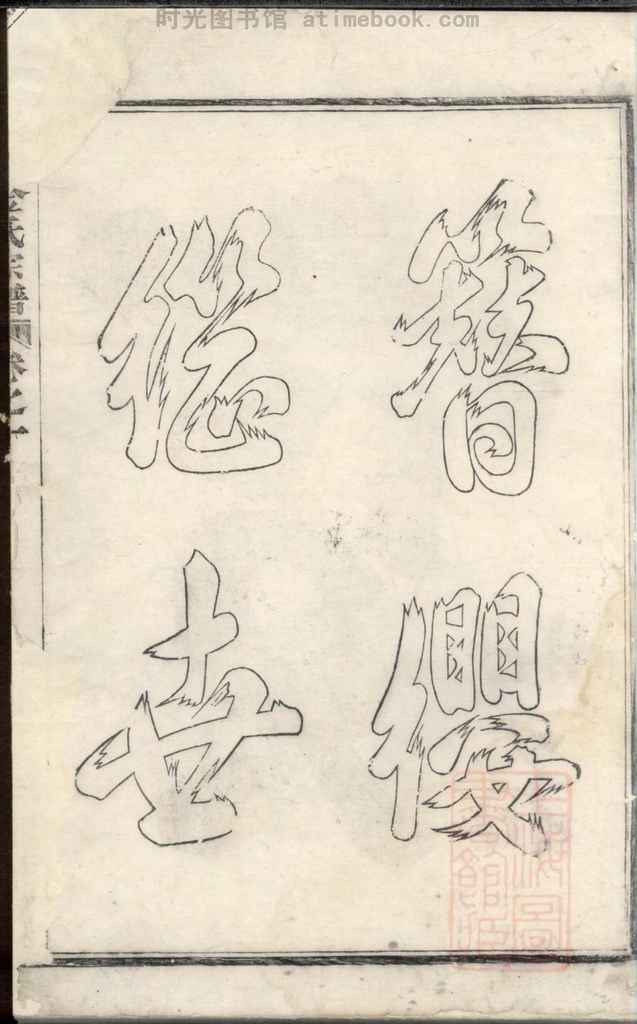 时光图书馆 atimebook.com
簪纓
繼世
氏宗譜 卷